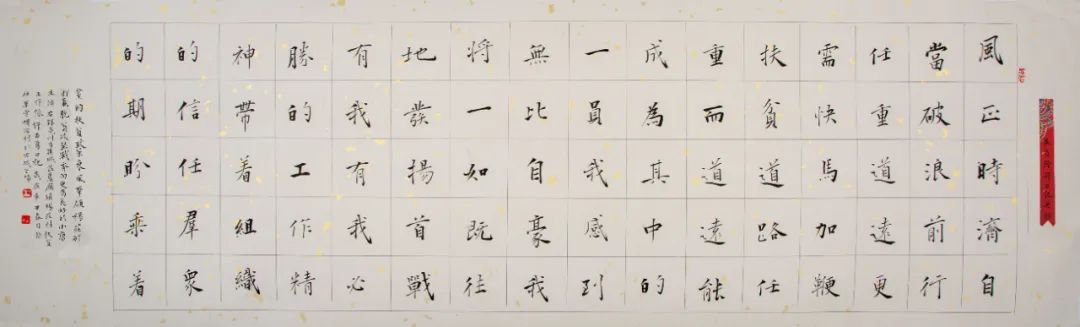 風正時濟自
當破浪前行
任重道遠更
需快馬加鞭
扶貧道路任
重而道遠能
成為其中的
一員我感到
無比自豪我
將一如既往
地發揚首戰
有我有我必
勝的工作精
神帶着組織
的信任羣衆
的期盼乘着
黨的扶貧政策東風
打贏脫貧攻堅戰
生活